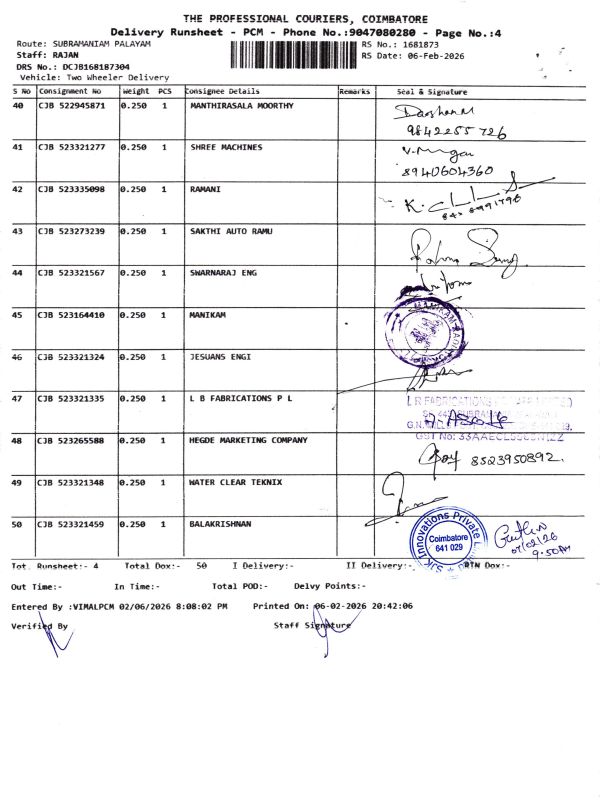 THE PROFESSIONAL COURIERS, COIMBATORE
Delivery Runsheet - PCM - Phone No.:9047080280 - Page No.:4
Route: SUBRAMANIAM PALAYAM
RS No.: 1681873
Staff: RAJAN
RS Date: 06-Feb-2026
DRS No.: DCJB168187304
Vehicle: Two Wheeler Delivery
S No Consignment No Weight PCS Consignee Details Remarks Seal & Signature
40 CJB 522945871 0.250 1 MANTHIRASALA MOORTHY
9842255726
41 CJB 523321277 0.250 1 SHREE MACHINES
8940604360
42 CJB 523335098 0.250 1 RAMANI
43 CJB 523273239 0.250 1 SAKTHI AUTO RAMU
44 CJB 523321567 0.250 1 SWARNARAJ ENG
45 CJB 523164410 0.250 1 MANIKAM
46 CJB 523321324 0.250 1 JESUANS ENGI
47 CJB 523321335 0.250 1 L B FABRICATIONS P L
48 CJB 523265588 0.250 1 HEGDE MARKETING COMPANY
8523950892.
49 CJB 523321348 0.250 1 WATER CLEAR TEKNIX
50 CJB 523321459 0.250 1 BALAKRISHNAN
SJK Innovations Private
Coimbatore
641 029
07/02/26
9.50AM
Tot. Runsheet:- 4 Total Dox:- 50 I Delivery:- II Delivery:- RTN Dox:-
Out Time:- In Time:- Total POD:- Delvy Points:-
Entered By :VIMALPCM 02/06/2026 8:08:02 PM Printed On: 06-02-2026 20:42:06
Verified By Staff Signature